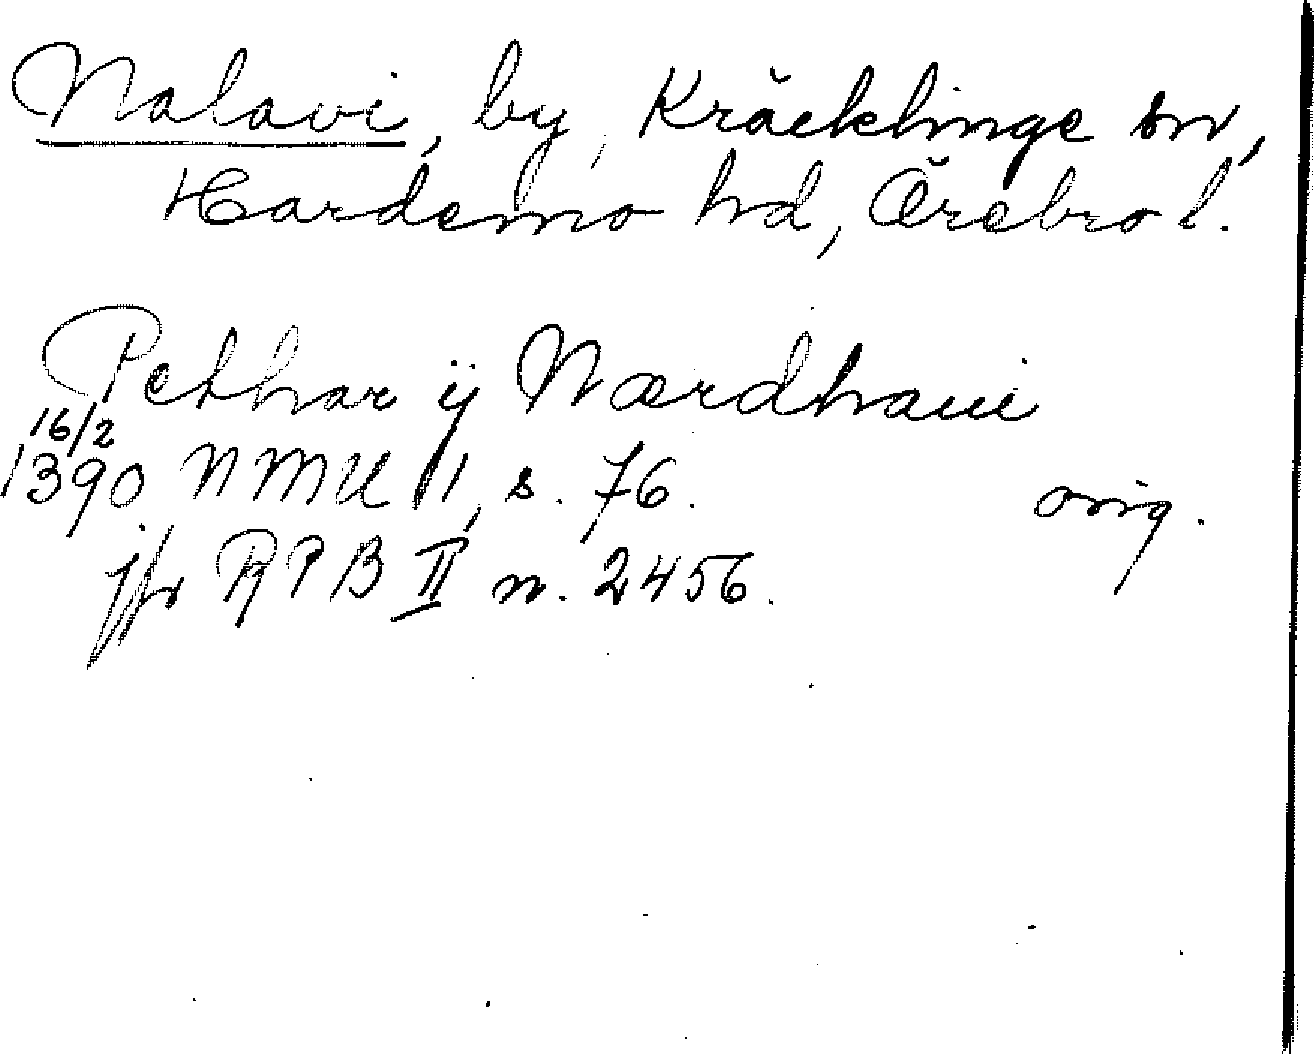 Nalavi, by, Kräcklinge sn,
Hardemo hd, Örebro l.
Pethar ij Nærdhaui
16/2
1390 NMU 1, s. 76. orig.
jfr RPB II n. 2456.